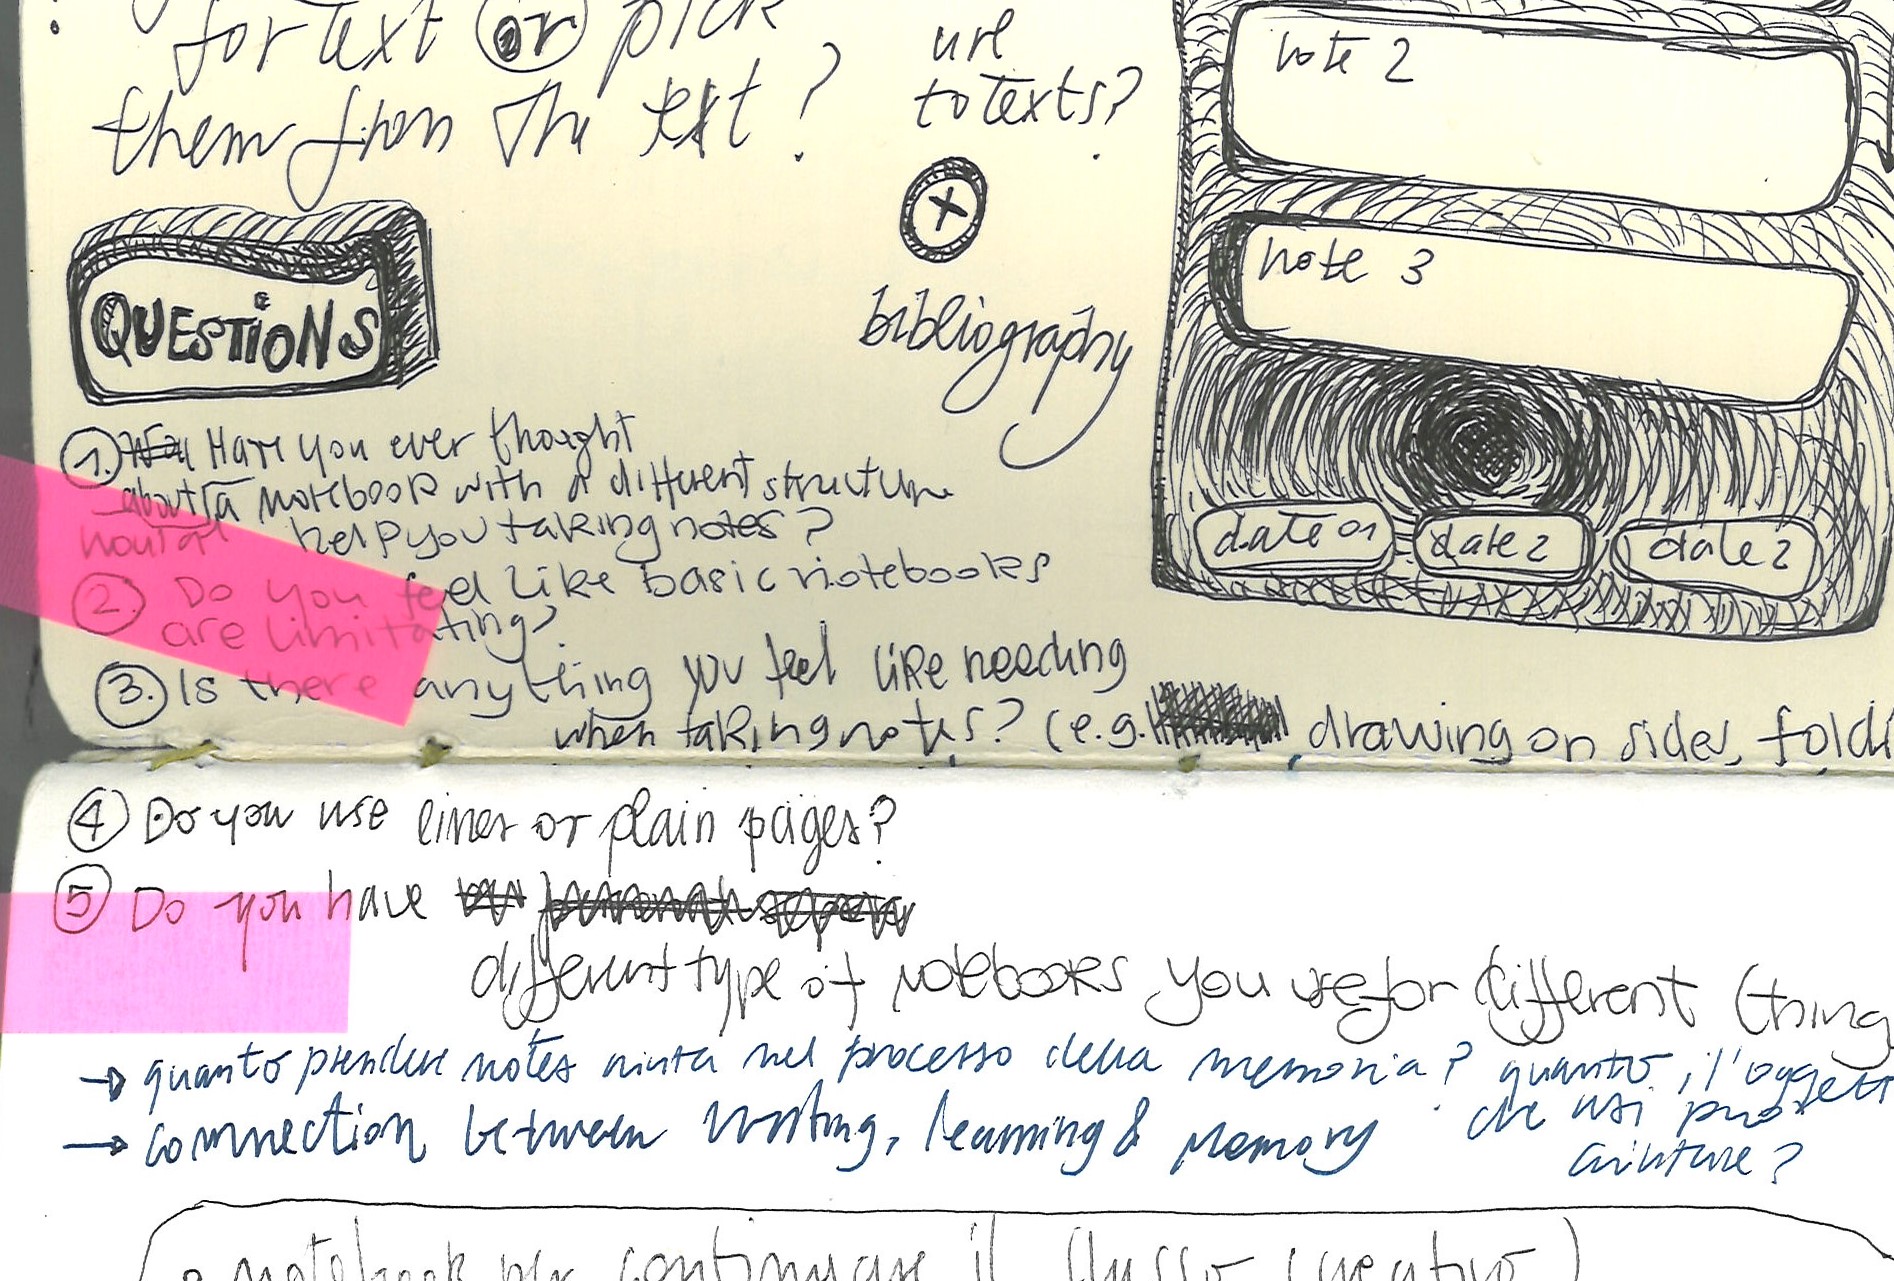 for text or pick
them from the text?
use
to texts?
bibliography
note 2
note 3
date 01
date 2
date 2
QUESTIONS
1. Have you ever thought
about a notebook with a different structure
would help you taking notes?
2. Do you feel like basic notebooks
are limitating?
3. Is there anything you feel like needing
when taking notes? (e.g. drawing on sides, foldi
4 Do you use lines or plain pages?
5 Do you have
different type of notebooks you use for different thing
→ quanto prendere notes aiuta nel processo della memoria? quanto l'oggett
che usi può
aiutare?
→ connection between writing, learning & memory
notebook per continuare il flusso creativo